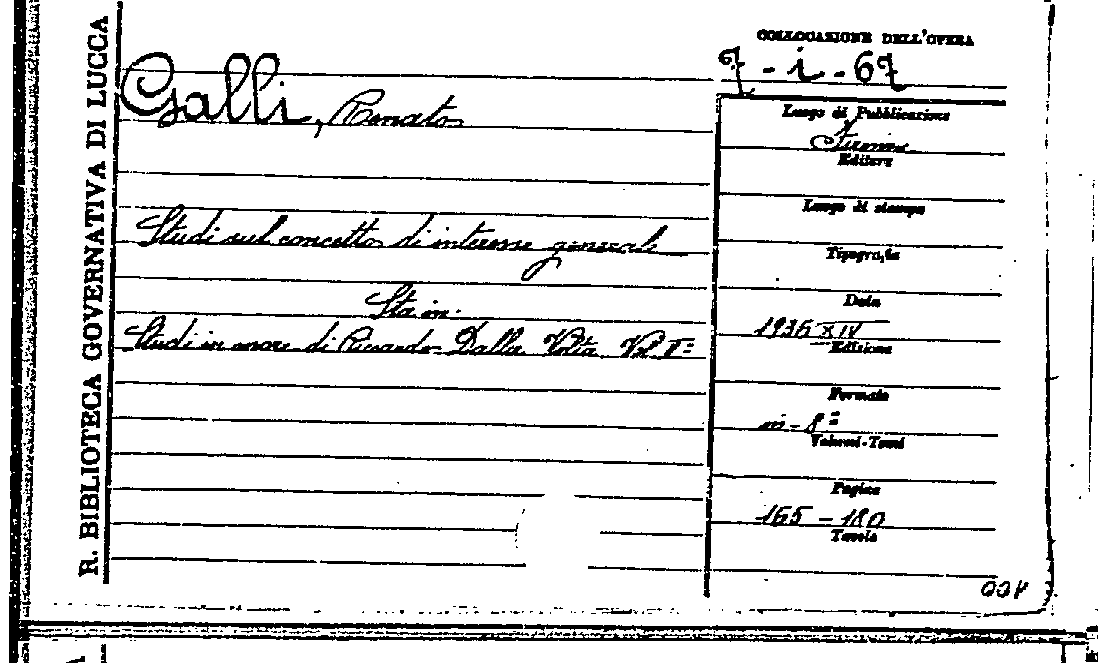 R. BIBLIOTECA GOVERNATIVA DI LUCCA
COLLOCAZIONE DELL'OPERA
67 - i - 67
Galli, Renato
Luogo di Pubblicazione
Firenze
Editore
Luogo di stampa
Studi sul concetto di interesse generale
Tipografia
Sta in:
Data
1936 XIV
Studi in onore di Riccardo Dalla Volta Vol Iº
Edizione
Formato
in-8º
Volumi-Tomi
Pagine
165 - 180
Tavole